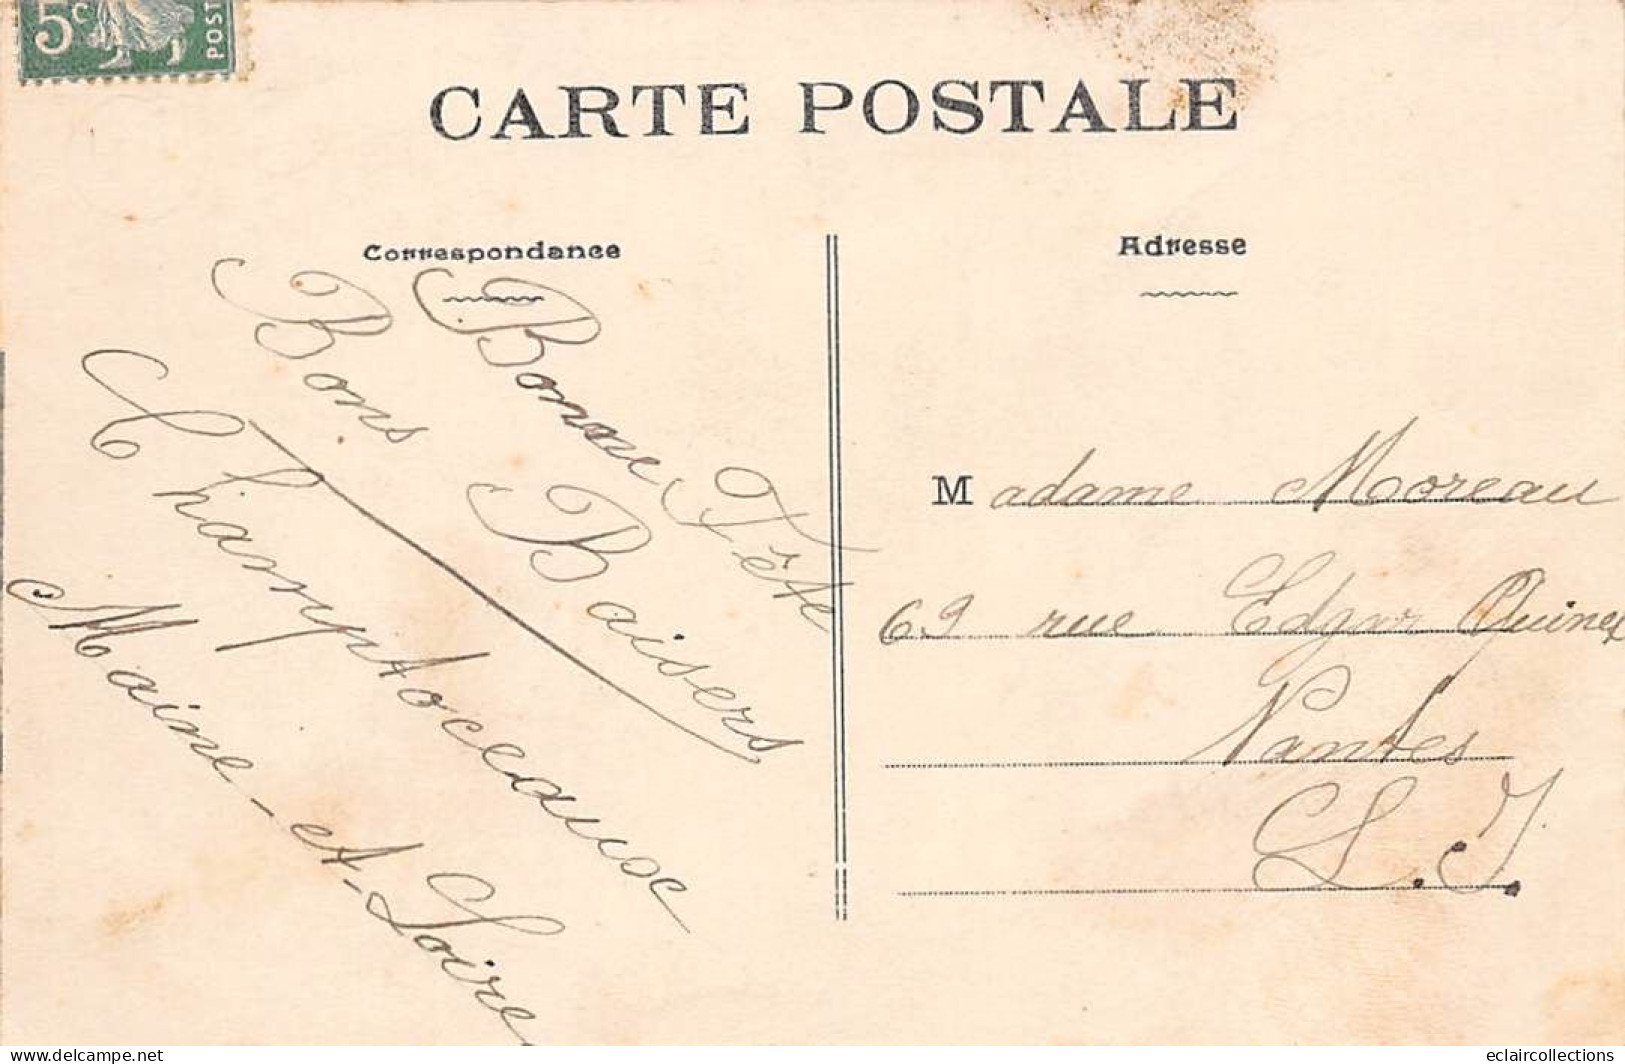 5c
POST
CARTE POSTALE
Correspondance
Bonne Fête
Bons Baisers
Champtoceaux
Maine-et-Loire
Adresse
Madame Moreau
69 rue Edgar Quinet
Nantes
L. I.
eclaircollections